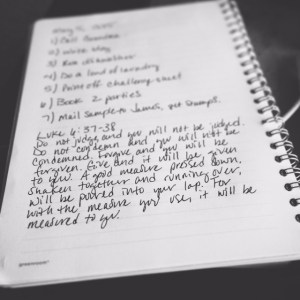 1) Call
2) Write blog
3) Run dishwasher
4) Do a load of laundry
5) Print off challenge sheet
6) Book 2 parties
7) Mail Sample to James, get stamps.
Luke 6:37-38
Do not judge, and you will not be judged.
Do not condemn and you will not be
condemned. Forgive and you will be
forgiven. Give and it will be given
to you. A good measure pressed down,
shaken together and running over,
will be poured into your lap. For
with the measure you use, it will be
measured to you.